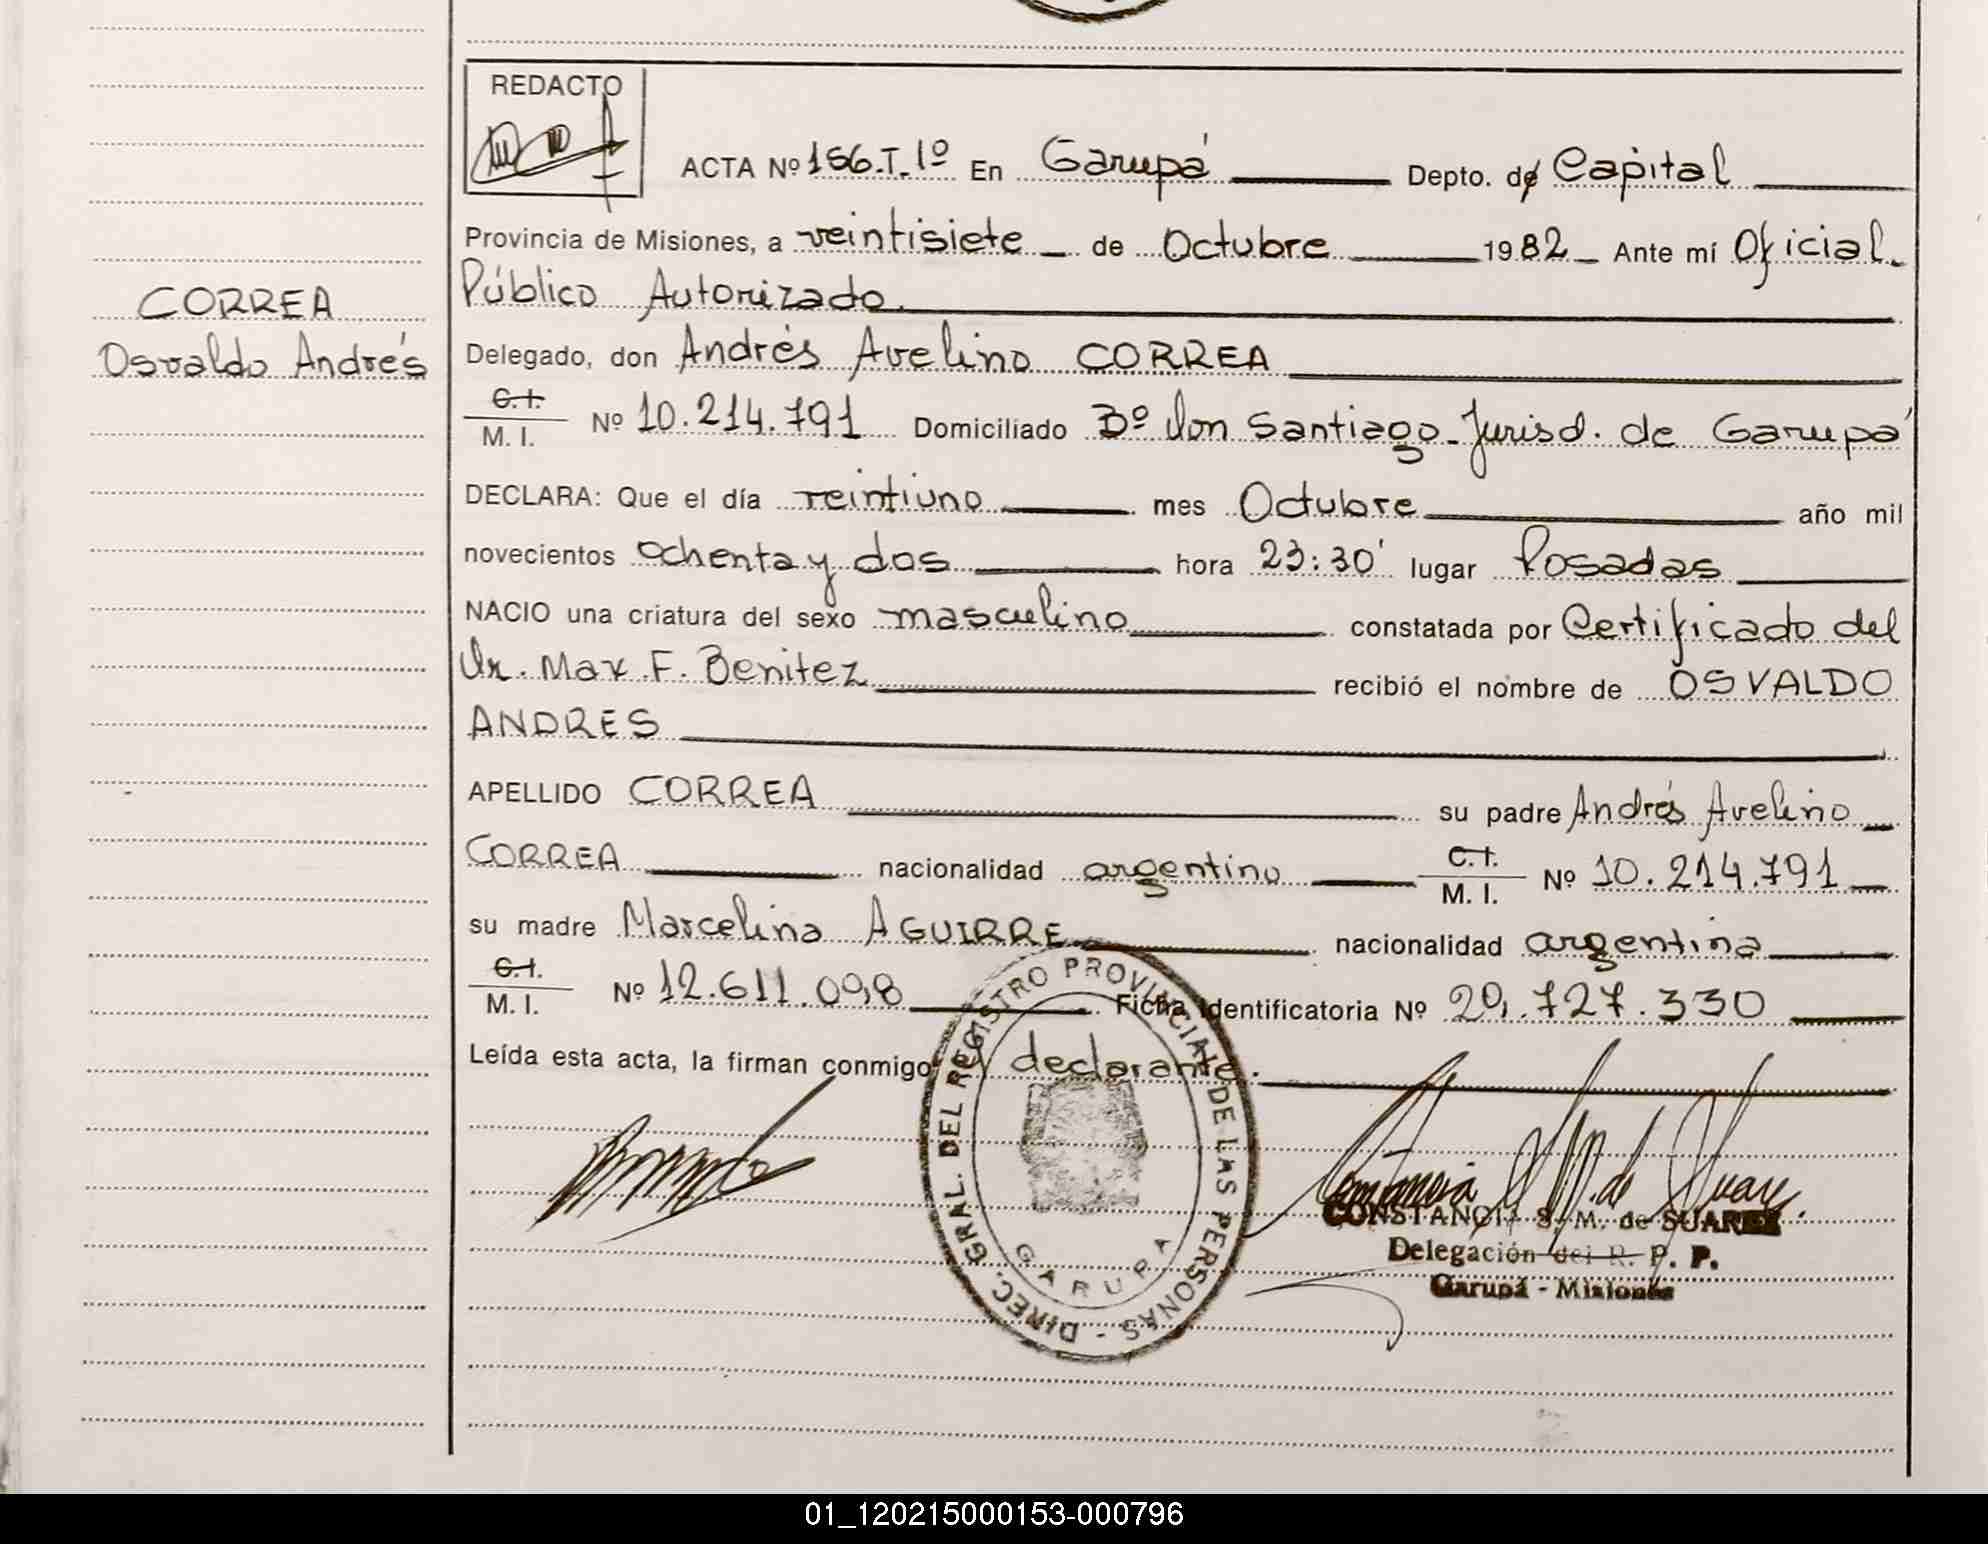 REDACTO
ACTA Nº 156.T.1º En Garupá Depto. de Capital
Provincia de Misiones, a veintisiete de Octubre 1982 Ante mí Oficial
Público Autorizado.
CORREA
Osvaldo Andrés
Delegado, don Andrés Avelino CORREA
C.I.
M. I. Nº 10.214.791 Domiciliado Bº Don Santiago - Jurisd. de Garupá
DECLARA: Que el día veintiuno mes Octubre año mil
novecientos ochenta y dos hora 23:30' lugar Posadas
NACIO una criatura del sexo masculino constatada por Certificado del
Dr. Max F. Benitez recibió el nombre de OSVALDO
ANDRES
APELLIDO CORREA su padre Andrés Avelino
CORREA nacionalidad argentino C.I. M. I. Nº 10.214.791
su madre Marcelina AGUIRRE nacionalidad argentina
C.I.
M. I. Nº 12.611.098 Ficha Identificatoria Nº 29.727.330
Leída esta acta, la firman conmigo declarante.
DIREC. GRAL. DEL REGISTRO PROVINCIAL DE LAS PERSONAS -
GARUPA
Constancia S. M. de Suarez
CONSTANCIA S. M. de SUAREZ
Delegación del R. P. P.
Garupá - Misiones
01_120215000153-000796